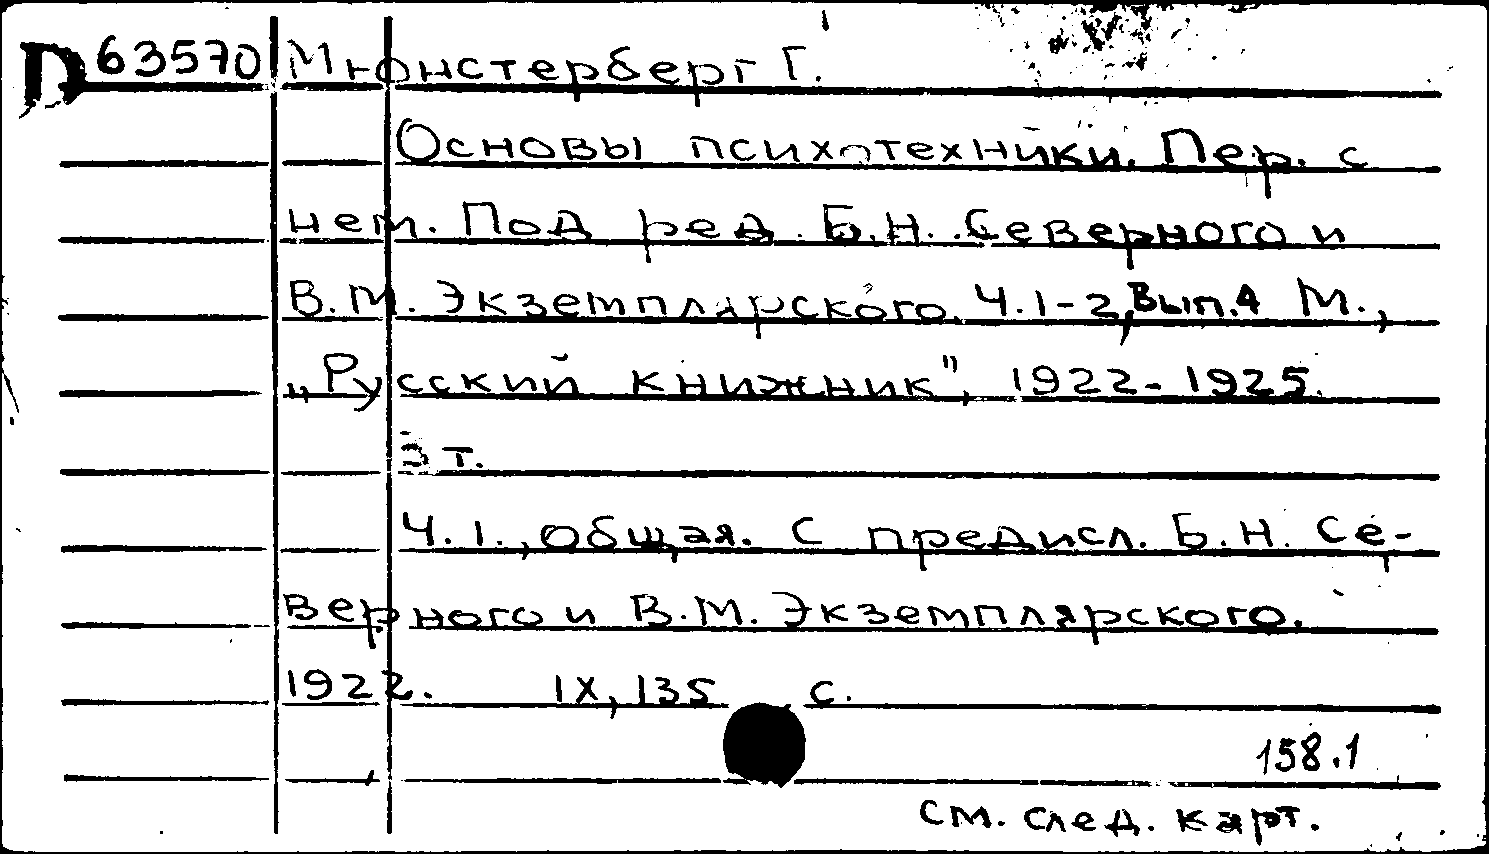 D 63570 Мюнстерберг Г.
Основы психотехники. Пер. с
нем. Под ред. Б.Н. Северного и
В.М. Экземплярского. Ч.1-2, Вып.4 М.,
„Русский книжник", 1922-1925.
3 т.
Ч.1., Общая. С предисл. Б.Н. Се-
верного и В.М. Экземплярского.
1922. IX, 135 с.
158.1
см. след. карт.